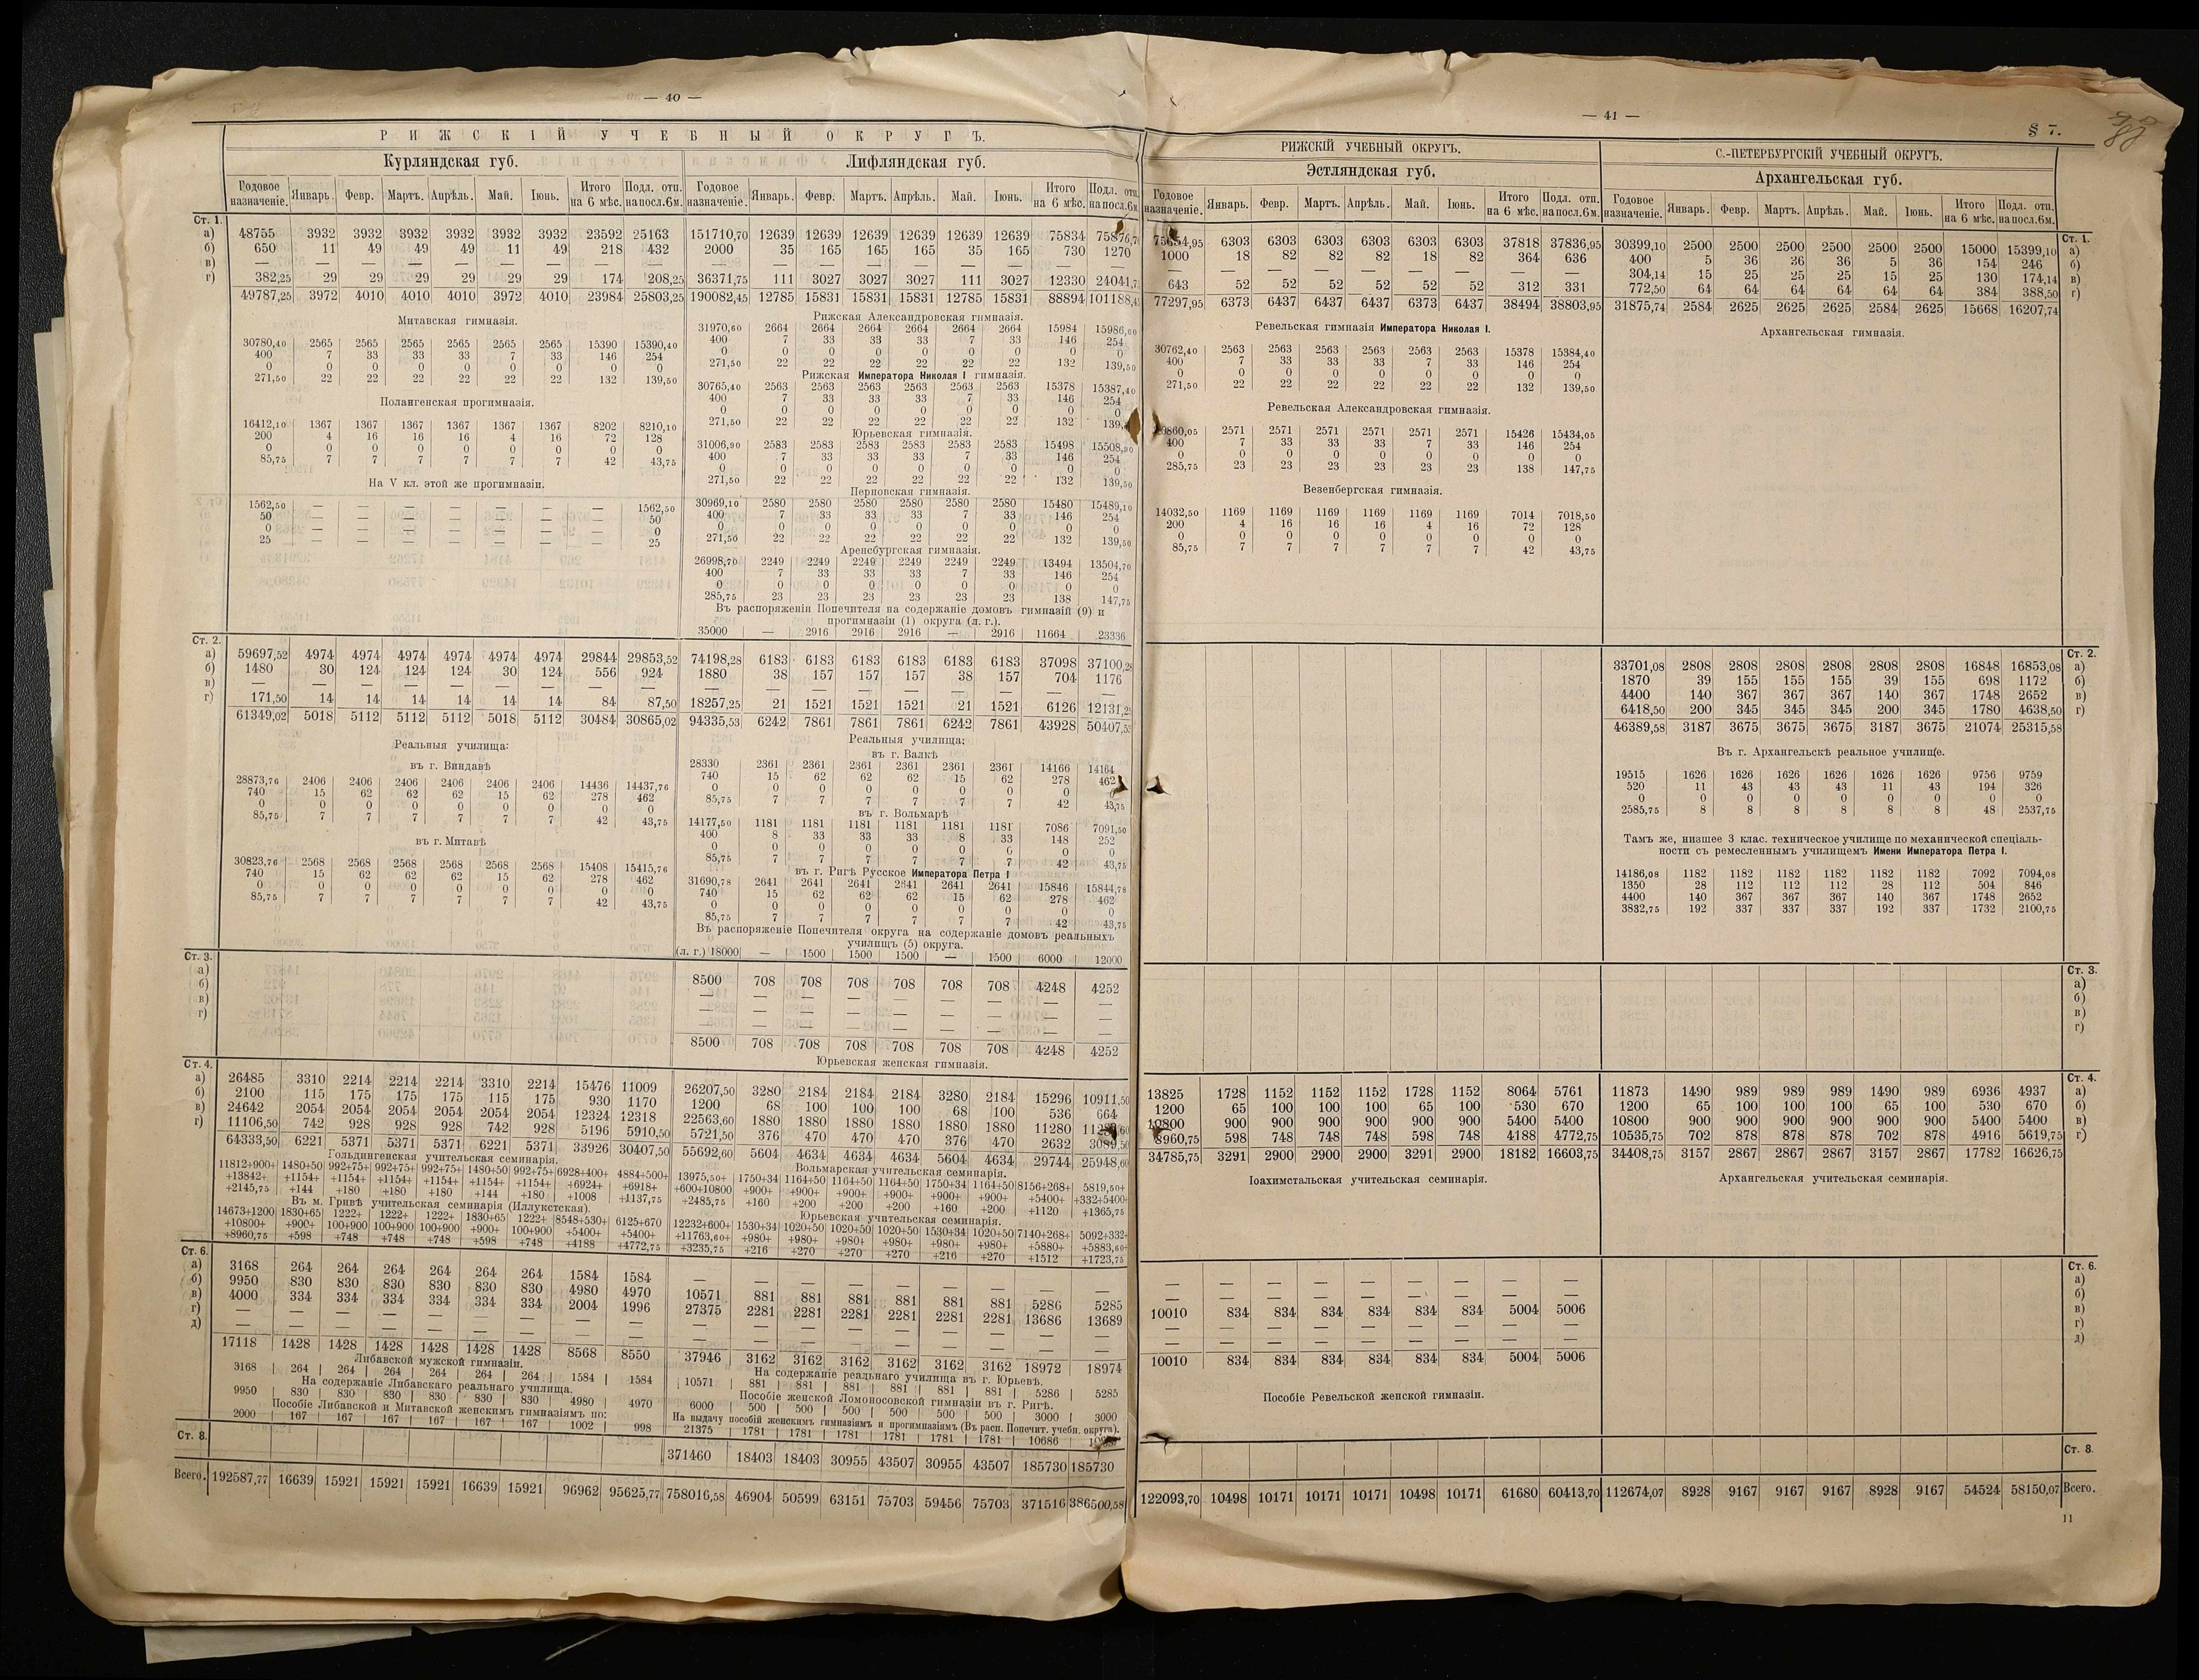 — 40 —
РИЖСКІЙ УЧЕБНЫЙ ОКРУГЪ.
Курляндская губ. Лифляндская губ.
Годовое назначеніе. Январь. Февр. Мартъ. Апрѣль. Май. Іюнь. Итого на 6 мѣс. Подл. отп. на посл. 6 м. Годовое назначеніе. Январь. Февр. Мартъ. Апрѣль. Май. Іюнь. Итого на 6 мѣс. Подл. отп. на посл. 6 м.
Ст. 1.
а) 48755 3932 3932 3932 3932 3932 3932 23592 25163 151710,70 12639 12639 12639 12639 12639 12639 75834 75876,70
б) 650 11 49 49 49 11 49 218 432 2000 35 165 165 165 35 165 730 1270
в) — — — — — — — — — — — — — — — — — —
г) 382,25 29 29 29 29 29 29 174 208,25 36371,75 111 3027 3027 3027 111 3027 12330
49787,25 3972 4010 4010 4010 3972 4010 23984 25803,25 190082,45 12785 15831 15831 15831 12785 15831 88894
Митавская гимназія.
30780,40 2565 2565 2565 2565 2565 2565 15390 15390,40
400 7 33 33 33 7 33 146 254
0 0 0 0 0 0 0 0 0
271,50 22 22 22 22 22 22 132 139,50
Полангенская прогимназія.
16412,10 1367 1367 1367 1367 1367 1367 8202 8210,10
200 4 16 16 16 4 16 72 128
0 0 0 0 0 0 0 0 0
85,75 7 7 7 7 7 7 42 43,75
На V кл. этой же прогимназіи.
1562,50 — — — — — — — 1562,50
50 — — — — — — — 50
0 — — — — — — — 0
25 — — — — — — — 25
Рижская Александровская гимназія.
31970,60 2664 2664 2664 2664 2664 2664 15984 15986,60
400 7 33 33 33 7 33 146 254
0 0 0 0 0 0 0 0 0
271,50 22 22 22 22 22 22 132 139,50
Рижская Императора Николая I гимназія.
30765,40 2563 2563 2563 2563 2563 2563 15378 15387,40
400 7 33 33 33 7 33 146 254
0 0 0 0 0 0 0 0 0
271,50 22 22 22 22 22 22 132
Юрьевская гимназія.
31006,90 2583 2583 2583 2583 2583 2583 15498 15508,90
400 7 33 33 33 7 33 146 254
0 0 0 0 0 0 0 0 0
271,50 22 22 22 22 22 22 132 139,50
Перновская гимназія.
30969,10 2580 2580 2580 2580 2580 2580 15480 15489,10
400 7 33 33 33 7 33 146 254
0 0 0 0 0 0 0 0 0
271,50 22 22 22 22 22 22 132 139,50
Аренсбургская гимназія.
26998,70 2249 2249 2249 2249 2249 2249 13494 13504,70
400 7 33 33 33 7 33 146 254
0 0 0 0 0 0 0 0 0
285,75 23 23 23 23 23 23 138 147,75
Въ распоряженіи Попечителя на содержаніе домовъ гимназій (9) и
прогимназіи (1) округа (л. г.).
35000 — 2916 2916 2916 — 2916 11664 23336
Ст. 2.
а) 59697,52 4974 4974 4974 4974 4974 4974 29844 29853,52 74198,28 6183 6183 6183 6183 6183 6183 37098 37100,28
б) 1480 30 124 124 124 30 124 556 924 1880 38 157 157 157 38 157 704 1176
в) — — — — — — — — — — — — — — — — — —
г) 171,50 14 14 14 14 14 14 84 87,50 18257,25 21 1521 1521 1521 21 1521 6126 12131,25
61349,02 5018 5112 5112 5112 5018 5112 30484 30865,02 94335,53 6242 7861 7861 7861 6242 7861 43928 50407,53
Реальныя училища:
въ г. Виндавѣ
28873,76 2406 2406 2406 2406 2406 2406 14436 14437,76
740 15 62 62 62 15 62 278 462
0 0 0 0 0 0 0 0 0
85,75 7 7 7 7 7 7 42 43,75
въ г. Митавѣ
30823,76 2568 2568 2568 2568 2568 2568 15408 15415,76
740 15 62 62 62 15 62 278 462
0 0 0 0 0 0 0 0 0
85,75 7 7 7 7 7 7 42 43,75
Реальныя училища:
въ г. Валкѣ
28330 2361 2361 2361 2361 2361 2361 14166 14164
740 15 62 62 62 15 62 278 462
0 0 0 0 0 0 0 0
85,75 7 7 7 7 7 7 42 43,75
въ г. Вольмарѣ
14177,50 1181 1181 1181 1181 1181 1181 7086 7091,50
400 8 33 33 33 8 33 148 252
0 0 0 0 0 0 0 0 0
85,75 7 7 7 7 7 7 42 43,75
въ г. Ригѣ Русское Императора Петра I
31690,78 2641 2641 2641 2641 2641 2641 15846 15844,78
740 15 62 62 62 15 62 278 462
0 0 0 0 0 0 0 0 0
85,75 7 7 7 7 7 7 42 43,75
Въ распоряженіе Попечителя округа на содержаніе домовъ реальныхъ
училищъ (5) округа.
(л. г.) 18000 — 1500 1500 1500 — 1500 6000 12000
Ст. 3.
а) 8500 708 708 708 708 708 708 4248 4252
б) — — — — — — — — —
в) — — — — — — — — —
г) — — — — — — — — —
8500 708 708 708 708 708 708 4248 4252
Юрьевская женская гимназія.
Ст. 4.
а) 26485 3310 2214 2214 2214 3310 2214 15476 11009 26207,50 3280 2184 2184 2184 3280 2184 15296 10911,50
б) 2100 115 175 175 175 115 175 930 1170 1200 68 100 100 100 68 100 536 664
в) 24642 2054 2054 2054 2054 2054 2054 12324 12318 22563,60 1880 1880 1880 1880 1880 1880 11280
г) 11106,50 742 928 928 928 742 928 5196 5910,50 5721,50 376 470 470 470 376 470 2632 3089,50
64333,50 6221 5371 5371 5371 6221 5371 33926 30407,50 55692,60 5604 4634 4634 4634 5604 4634 29744 25948,60
Гольдингенская учительская семинарія.
11812+900+ 1480+50 992+75+ 992+75+ 992+75+ 1480+50 992+75+ 6928+400+ 4884+500+
+13842+ +1154+ +1154+ +1154+ +1154+ +1154+ +1154+ +6924+ +6918+
+2145,75 +144 +180 +180 +180 +144 +180 +1008 +1137,75
Въ м. Гривѣ учительская семинарія (Иллукстская).
14673+1200 1830+65 1222+ 1222+ 1222+ 1830+65 1222+ 8548+530+ 6125+670
+10800+ +900+ 100+900 100+900 100+900 +900+ 100+900 +5400+ +5400+
+8960,75 +598 +748 +748 +748 +598 +748 +4188 +4772,75
Вольмарская учительская семинарія.
13975,50+ 1750+34 1164+50 1164+50 1164+50 1750+34 1164+50 8156+268+ 5819,50+
+600+10800 +900+ +900+ +900+ +900+ +900+ +900+ +5400+ +332+5400+
+2485,75 +160 +200 +200 +200 +160 +200 +1120 +1365,75
Юрьевская учительская семинарія.
12232+600+ 1530+34 1020+50 1020+50 1020+50 1530+34 1020+50 7140+268+ 5092+332+
+11763,60+ +980+ +980+ +980+ +980+ +980+ +980+ +5880+ +5883,60+
+3235,75 +216 +270 +270 +270 +216 +270 +1512 +1723,75
Ст. 6.
а) 3168 264 264 264 264 264 264 1584 1584 — — — — — — — — —
б) 9950 830 830 830 830 830 830 4980 4970 10571 881 881 881 881 881 881 5286 5285
в) 4000 334 334 334 334 334 334 2004 1996 27375 2281 2281 2281 2281 2281 2281 13686 13689
г) — — — — — — — — — — — — — — — — — —
д) — — — — — — — — — — — — — — — — — —
17118 1428 1428 1428 1428 1428 1428 8568 8550 37946 3162 3162 3162 3162 3162 3162 18972 18974
Либавской мужской гимназіи.
3168 264 264 264 264 264 264 1584 1584
На содержаніе Либавскаго реальнаго училища.
9950 830 830 830 830 830 830 4980 4970
Пособіе Либавской и Митавской женскимъ гимназіямъ по:
2000 167 167 167 167 167 167 1002 998
На содержаніе реальнаго училища въ г. Юрьевѣ.
10571 881 881 881 881 881 881 5286 5285
Пособіе женской Ломоносовской гимназіи въ г. Ригѣ.
6000 500 500 500 500 500 500 3000 3000
На выдачу пособій женскимъ гимназіямъ и прогимназіямъ (Въ расп. Попечит. учебн. округа).
21375 1781 1781 1781 1781 1781 1781 10686
Ст. 8. 371460 18403 18403 30955 43507 30955 43507 185730 185730
Всего. 192587,77 16639 15921 15921 15921 16639 15921 96962 95625,77 758016,58 46904 50599 63151 75703 59456 75703 371516 386500,58
— 41 —
§ 7.
РИЖСКІЙ УЧЕБНЫЙ ОКРУГЪ. С.-ПЕТЕРБУРГСКІЙ УЧЕБНЫЙ ОКРУГЪ.
Эстляндская губ. Архангельская губ.
Годовое назначеніе. Январь. Февр. Мартъ. Апрѣль. Май. Іюнь. Итого на 6 мѣс. Подл. отп. на посл. 6 м. Годовое назначеніе. Январь. Февр. Мартъ. Апрѣль. Май. Іюнь. Итого на 6 мѣс. Подл. отп. на посл. 6 м.
Ст. 1.
6303 6303 6303 6303 6303 6303 37818 37836,95 30399,10 2500 2500 2500 2500 2500 2500 15000 15399,10 а)
1000 18 82 82 82 18 82 364 636 400 5 36 36 36 5 36 154 246 б)
— — — — — — — — — 304,14 15 25 25 25 15 25 130 174,14 в)
643 52 52 52 52 52 52 312 331 772,50 64 64 64 64 64 64 384 388,50 г)
77297,95 6373 6437 6437 6437 6373 6437 38494 38803,95 31875,74 2584 2625 2625 2625 2584 2625 15668 16207,74
Ревельская гимназія Императора Николая I. Архангельская гимназія.
30762,40 2563 2563 2563 2563 2563 2563 15378 15384,40
400 7 33 33 33 7 33 146 254
0 0 0 0 0 0 0 0 0
271,50 22 22 22 22 22 22 132 139,50
Ревельская Александровская гимназія.
2571 2571 2571 2571 2571 2571 15426 15434,05
400 7 33 33 33 7 33 146 254
0 0 0 0 0 0 0 0 0
285,75 23 23 23 23 23 23 138 147,75
Везенбергская гимназія.
14032,50 1169 1169 1169 1169 1169 1169 7014 7018,50
200 4 16 16 16 4 16 72 128
0 0 0 0 0 0 0 0 0
85,75 7 7 7 7 7 7 42 43,75
Ст. 2.
33701,08 2808 2808 2808 2808 2808 2808 16848 16853,08 а)
1870 39 155 155 155 39 155 698 1172 б)
4400 140 367 367 367 140 367 1748 2652 в)
6418,50 200 345 345 345 200 345 1780 4638,50 г)
46389,58 3187 3675 3675 3675 3187 3675 21074 25315,58
Въ г. Архангельскѣ реальное училище.
19515 1626 1626 1626 1626 1626 1626 9756 9759
520 11 43 43 43 11 43 194 326
0 0 0 0 0 0 0 0 0
2585,75 8 8 8 8 8 8 48 2537,75
Тамъ же, низшее 3 клас. техническое училище по механической спеціаль-
ности съ ремесленнымъ училищемъ Имени Императора Петра I.
14186,08 1182 1182 1182 1182 1182 1182 7092 7094,08
1350 28 112 112 112 28 112 504 846
4400 140 367 367 367 140 367 1748 2652
3832,75 192 337 337 337 192 337 1732 2100,75
Ст. 3.
а)
б)
в)
г)
Ст. 4.
13825 1728 1152 1152 1152 1728 1152 8064 5761 11873 1490 989 989 989 1490 989 6936 4937 а)
1200 65 100 100 100 65 100 530 670 1200 65 100 100 100 65 100 530 670 б)
10800 900 900 900 900 900 900 5400 5400 10800 900 900 900 900 900 900 5400 5400 в)
8960,75 598 748 748 748 598 748 4188 4772,75 10535,75 702 878 878 878 702 878 4916 5619,75 г)
34785,75 3291 2900 2900 2900 3291 2900 18182 16603,75 34408,75 3157 2867 2867 2867 3157 2867 17782 16626,75
Іоахимстальская учительская семинарія. Архангельская учительская семинарія.
Ст. 6.
— — — — — — — — — а)
— — — — — — — — — б)
10010 834 834 834 834 834 834 5004 5006 в)
— — — — — — — — — г)
— — — — — — — — — д)
10010 834 834 834 834 834 834 5004 5006
Пособіе Ревельской женской гимназіи.
Ст. 8.
122093,70 10498 10171 10171 10171 10498 10171 61680 60413,70 112674,07 8928 9167 9167 9167 8928 9167 54524 58150,07 Всего.
11